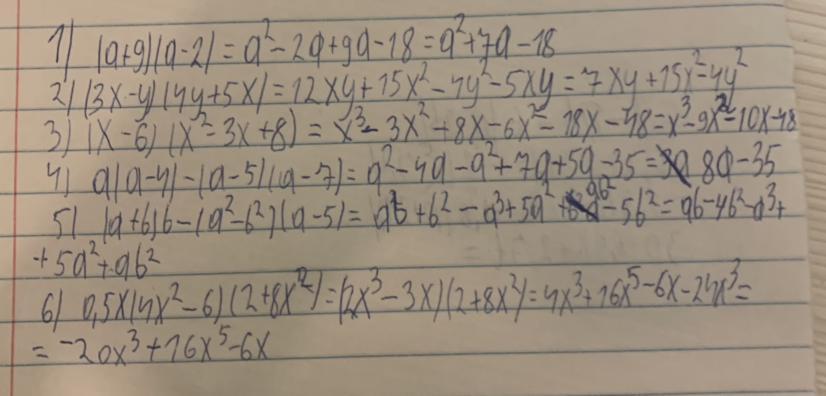 1) (a+9)(a-2) = a²-2a+9a-18 = a²+7a-18
2) (3x-y)(4y+5x) = 12xy+15x²-4y²-5xy = 7xy+15x²-4y²
3) (x-6)(x²-3x+8) = x³-3x²+8x-6x²-18x-48 = x³-9x²-10x-48
4) a(a-4)-(a-5)(a-7) = a²-4a-a²+7a+5a-35 = 8a-35
5) (a+b)b-(a²-b²)(a-5) = ab+b²-a³+5a²+ab²-5b² = ab-4b²-a³+
+5a²+ab²
6) 0,5x(4x²-6)(2+8x²) = (2x³-3x)(2+8x²) = 4x³+16x⁵-6x-24x³ =
= -20x³+16x⁵-6x